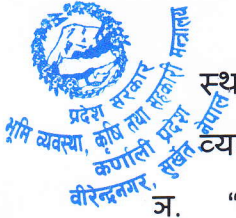 प्रदेश सरकार
भूमि व्यवस्था, कृषि तथा सहकारी मन्त्रालय
कर्णाली प्रदेश
वीरेन्द्रनगर, सुर्खेत नेपाल
स्थ
व्या
ञ. “